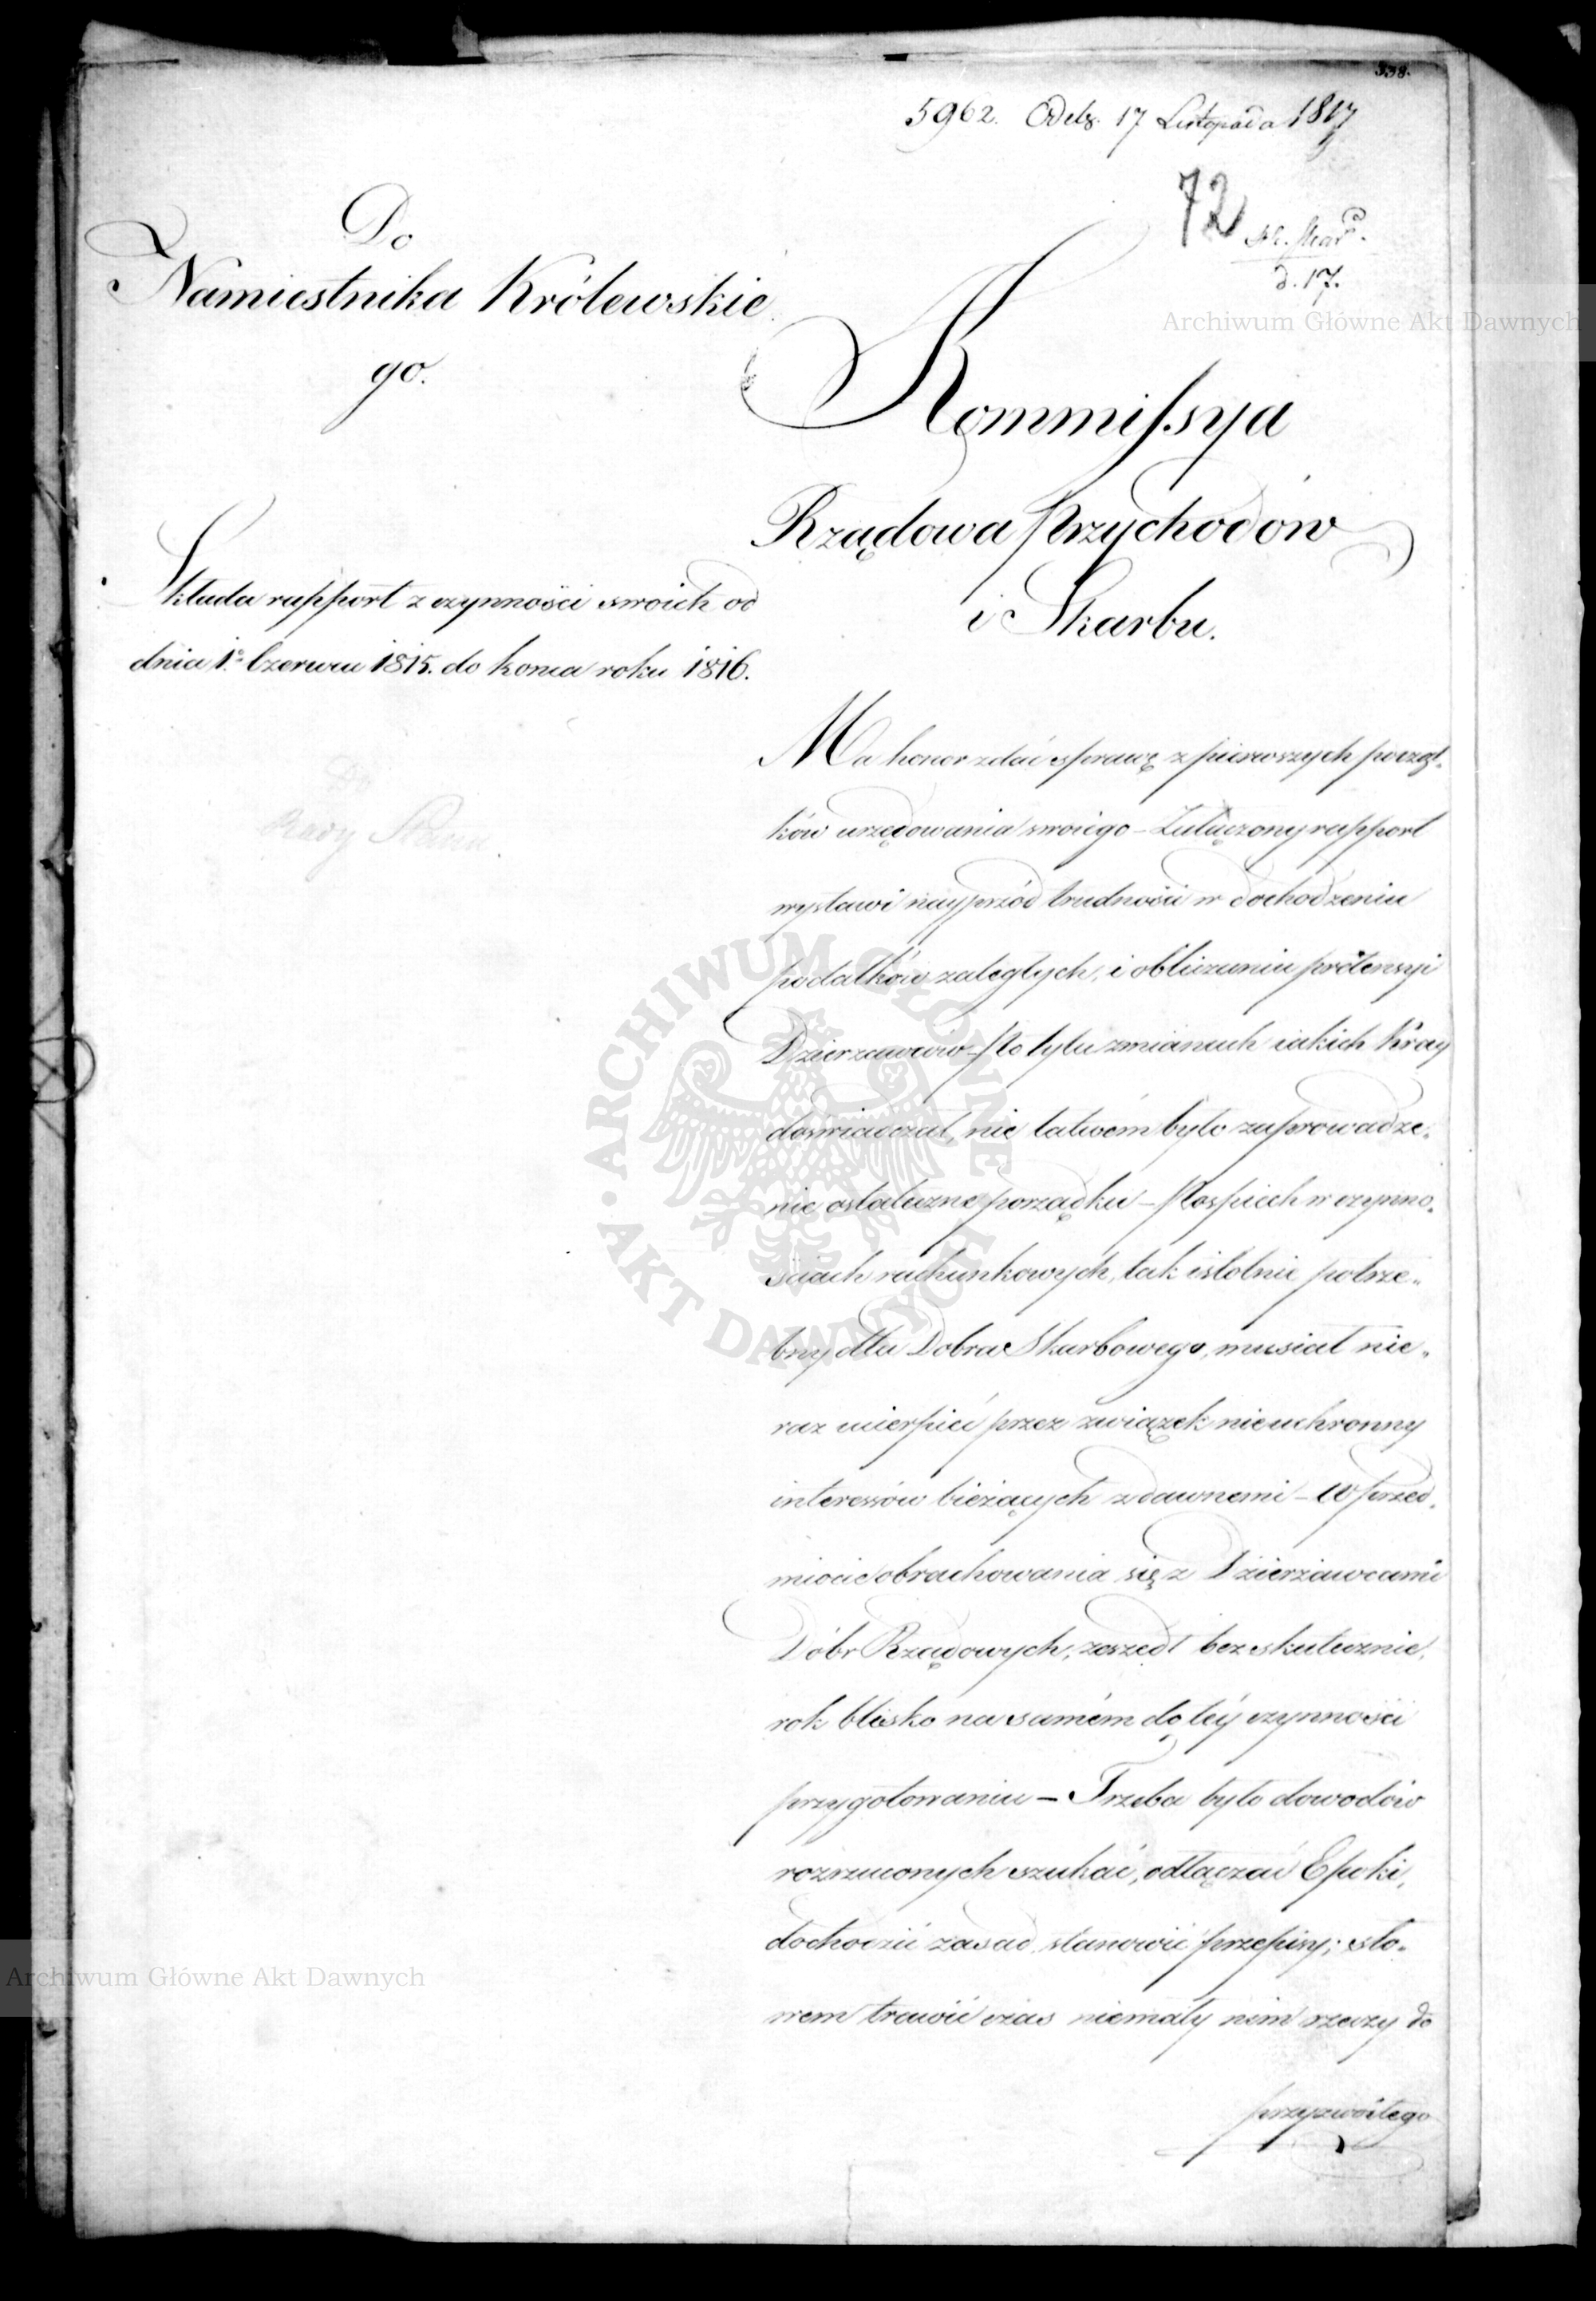 338.
5962. Odeb. 17 Listopada 1817
72
d. 17.
Do
Namiestnika Królewskie
go.
Składa rapport z czynności swoich od
dnia 1º Czerwca 1815. do końca roku 1816.
Do
Rady Stanu
Kommissya
Rządowa Przychodów
i Skarbu.
Ma honor zdać sprawę z pierwszych począt„
ków urzędowania swoiego – Załączony rapport
wystawi nayprzód trudności w dochodzeniu
podatków zaległych, i obliczeniu prétensyi
Dzierzawców – Po tylu zmianach iakich Kray
doświadczał, nie łatwém było zaprowadze„
nie ostateczne porządku – Pospiech w czynno„
ściach rachunkowych, tak istotnie potrze„
bny dla Dobra Skarbowego, musiał nie„
raz ucierpieć przez związek nieuchronny
interessów bieżących z dawnemi – W przed„
miocie obrachowania się z Dzierżawcami
Dóbr Rządowych, zeszedł bezskutecznie,
rok blisko na samém do téy czynności
przygotowaniu – Trzeba było dowodów
rozrzuconych szukać, odłączać Epoki,
dochodzić zasad stanowić przepisy; sło„
wem trawić czas niemały nim rzeczy do
przyzwoitego
Archiwum Główne Akt Dawnych
ARCHIWUM GŁÓWNE • AKT DAWNYCH
Archiwum Główne Akt Dawnych